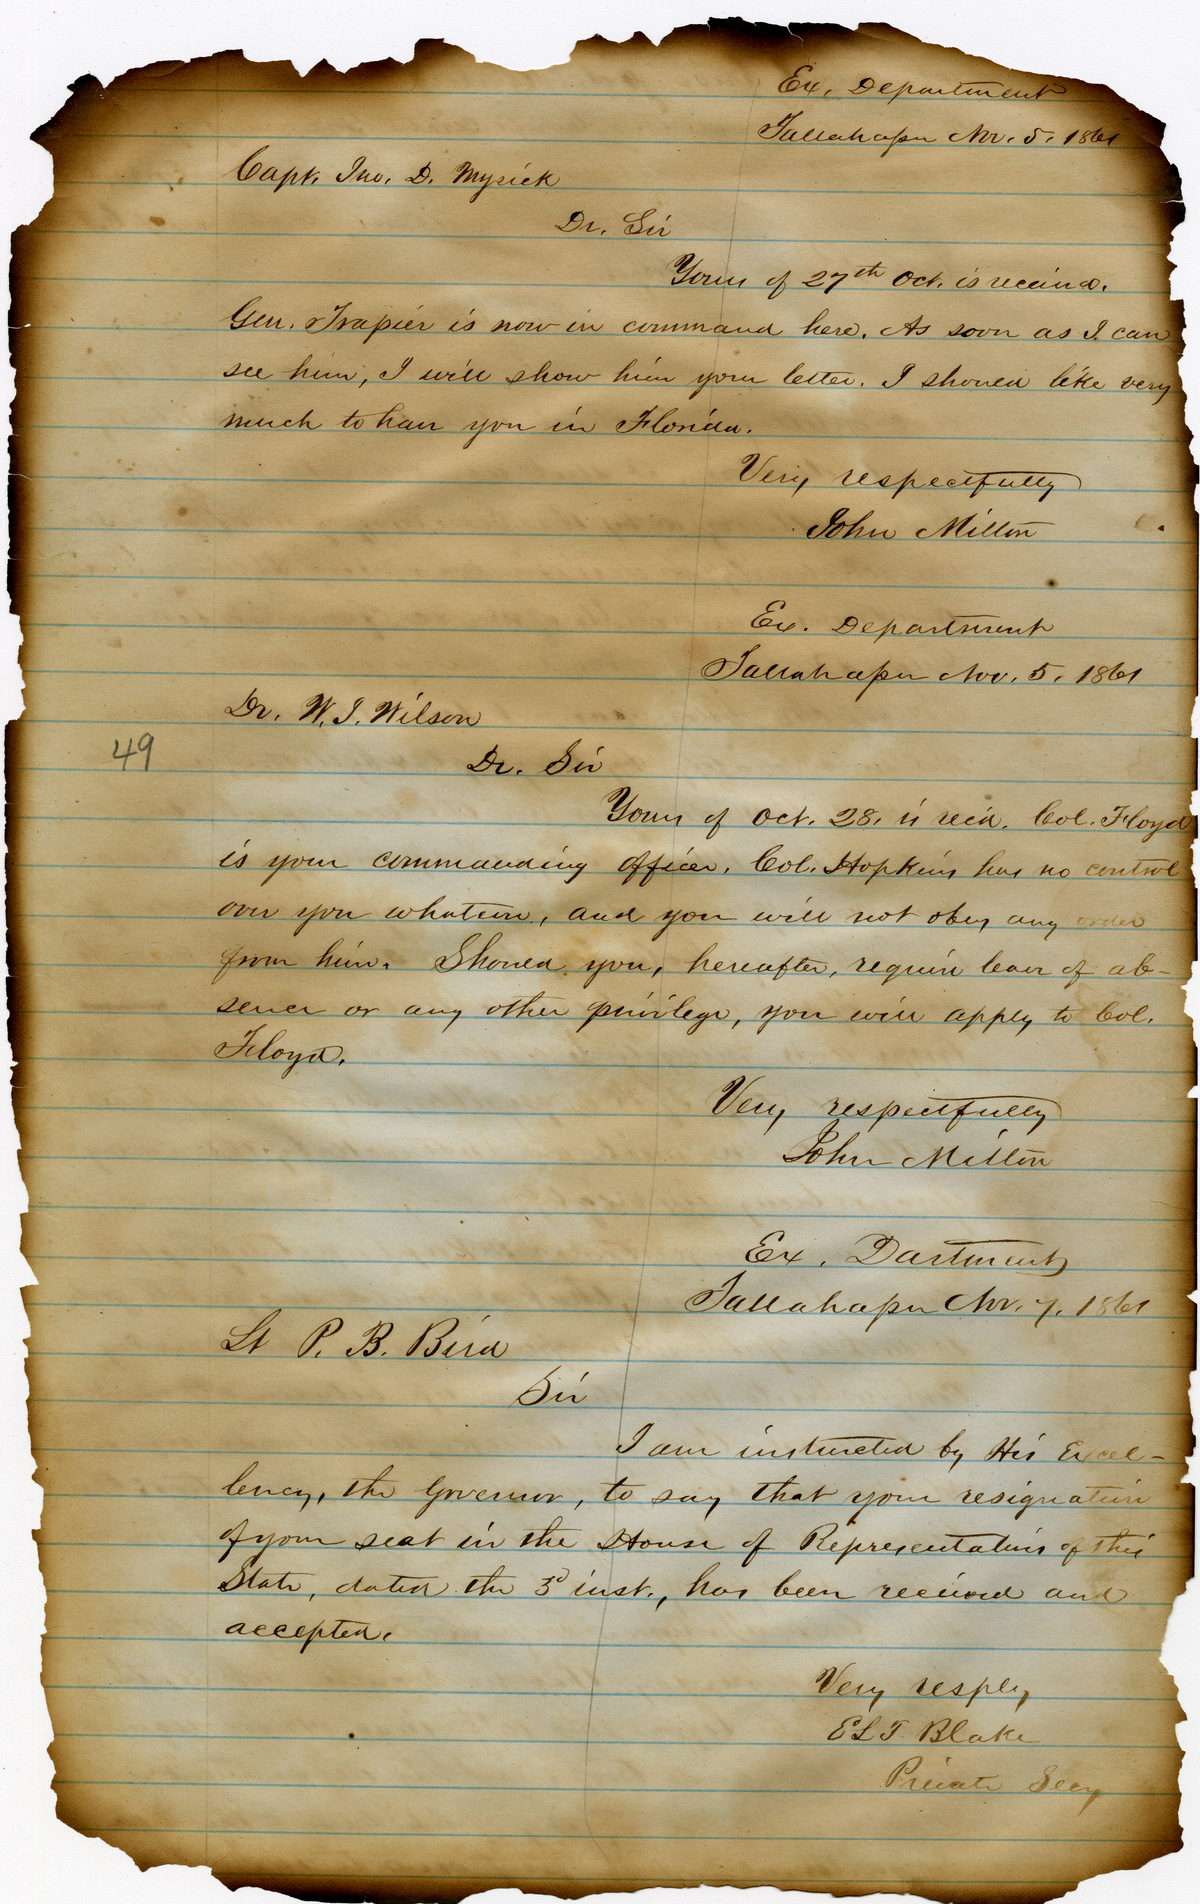 Ex. Department
Tallahassee Nov. 5. 1861
Capt. Jno. D. Myrick
Dr. Sir
Yours of 27th Oct. is received.
Gen. Trapier is now in command here. As soon as I can
see him, I will show him your letter. I should like very
much to have you in Florida.
Very respectfully
John Milton
Ex. Department
Tallahassee Nov. 5. 1861
Dr. W. J. Wilson
49
Dr. Sir
Yours of Oct. 28. is recd. Col. Floyd
is your commanding officer. Col. Hopkins has no control
over you whatever, and you will not obey any order
from him. Should you, hereafter, require leave of ab-
sence or any other privilege, you will apply to Col.
Floyd.
Very respectfully
John Milton
Ex. Dartment
Tallahassee Nov. 7. 1861
Lt P. B. Bird
Sir
I am instructed by His Excel-
lency, the Governor, to say that your resignation
of your seat in the House of Representatives of this
State, dated the 3d inst., has been received and
accepted.
Very resply
E L T Blake
Private Secy